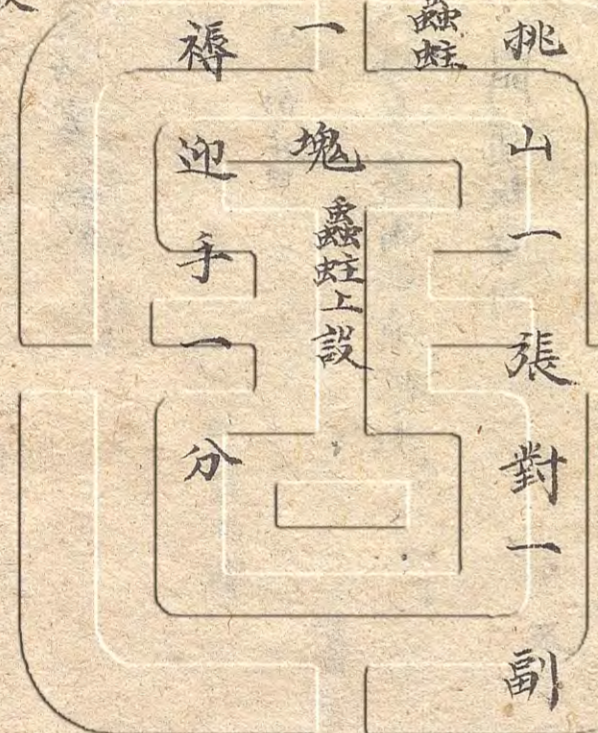 挑山一張對一副
蟲蛀
一塊
蟲蛀上設
褥迎手一分